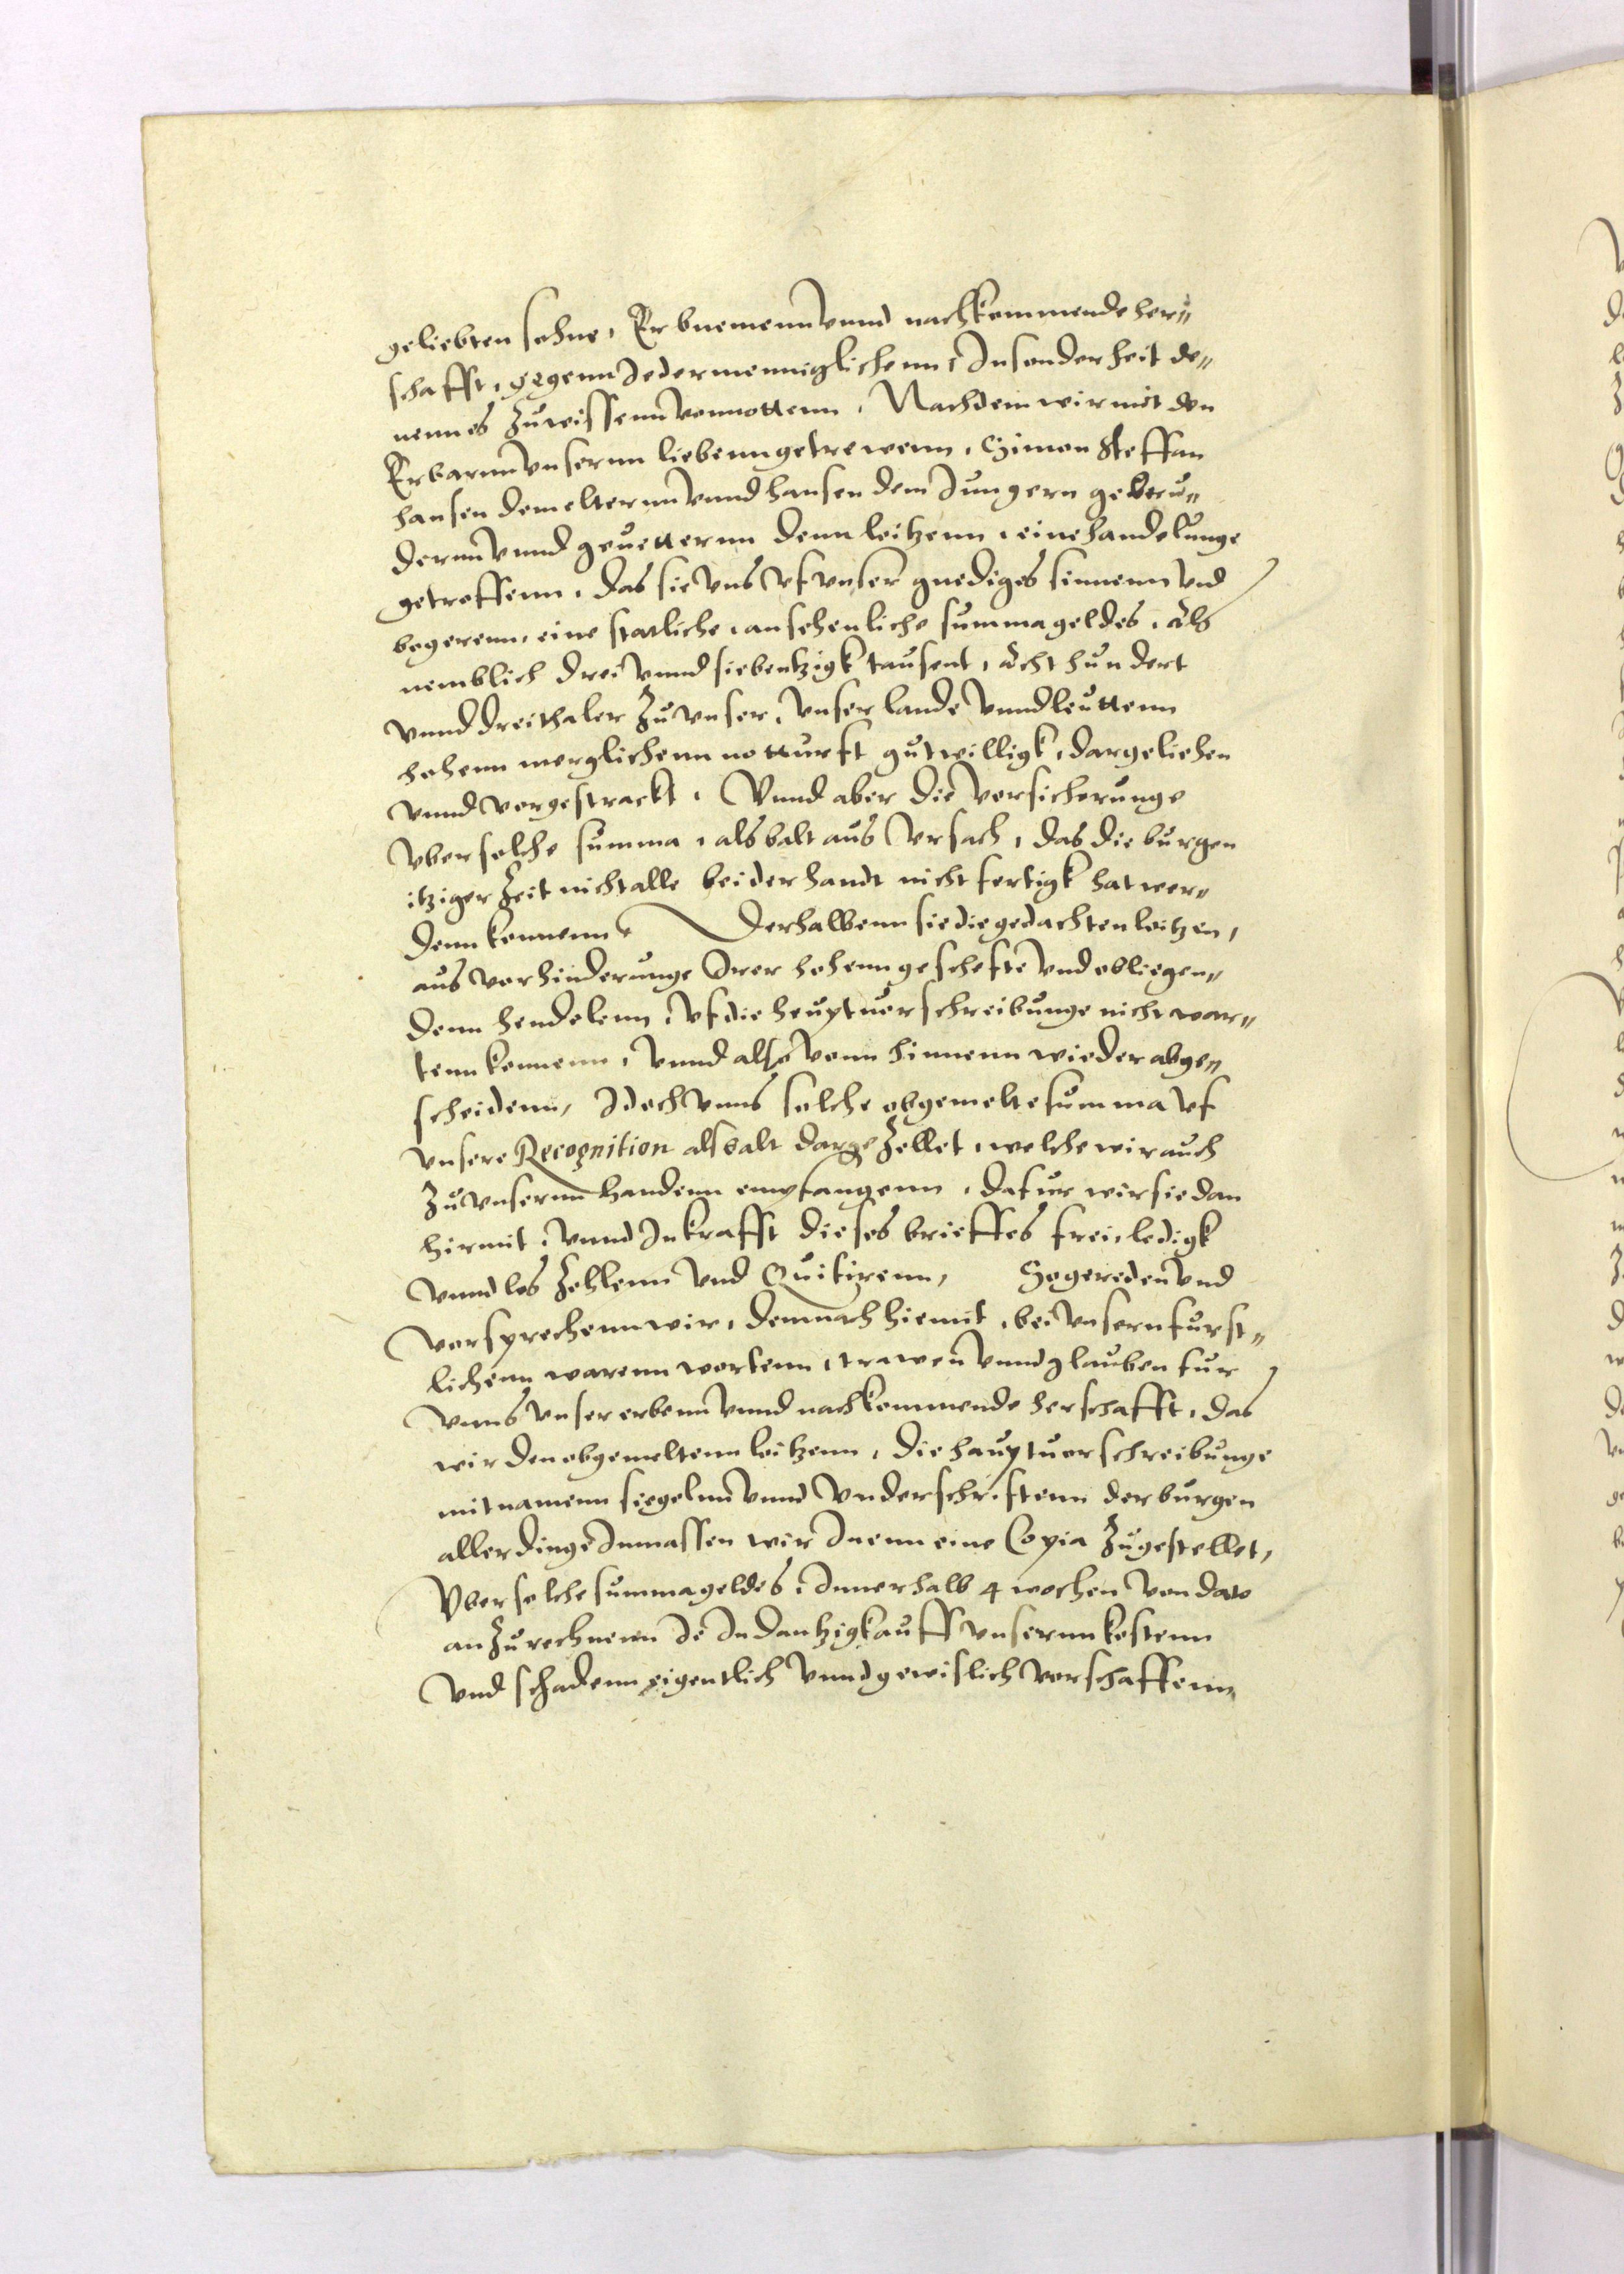 geliebten sohne, Erbnemenn vnnd nachkommende her„
schafft, gegenn Jedermenniglichenn, Insonderheit de„
nenn es zuwissenn vonnottenn, Nachdem wir mit den
Erbarnn vnsernn liebenn getrewenn, Simon Steffan
hansen dem elternn vnnd hansen dem Jungern gebru„
dernn vnnd geuetternn denn loitzenn, eine handelunge
getroffenn, das sie vns vf vnser gnediges sinnenn vnd
begerenn, eine statliche, ansehenliche summa geldes, als
nemblich drei vnnd siebentzigk tausent, acht hundert
vnnd drei thaler zu vnser, vnser lande vnnd leuttenn
hohenn merglichenn notturfft gutwilligk, dargeliehen
vnnd vorgestrackt, Vnnd aber die vorsicherunge
vber solche summa, alsbalt aus vrsach, das die burgen
itziger zeit nicht alle bei der handt nicht fertigk hat wer„
denn konnenn, Derhalbenn sie die gedachten loitzen,
aus vorhinderunge Irer hohenn geschefte vnd obliegen„
denn hendelenn, vf die heuptuorschreibunge nicht war„
tenn konnenn, vnnd also vonn hinnenn wieder abge„
scheidenn, Idoch vnns solche obgemelte summa vf
vnsere Recognition alsbalt dargezellet, welche wir auch
zu vnsernn handenn empfangenn, dafur wir sie dan
hirmit, vnnd In krafft dieses brieffes frei, ledigk
vnnd los zehlenn vnd Quitirenn, So gereden vnd
vorsprechenn wir, demnach hiemit, bei vnsern furst„
lichenn warenn wortenn, trawen vnnd glauben fur
vnns vnser erbenn vnnd nachkommende herschafft, das
wir den obgemeltenn loitzenn, die hauptuorschreibunge
mit namenn siegelnn vnnd vnderschrifftenn der burgen
aller dinge Inmassen wir Inenn eine Copia zugestellet,
Vber solche summa geldes, Innerhalb 4 wochen von dato
anzurechnenn Je In dantzigk auff vnsernn kostenn
vnd schadenn eigentlich vnnd gewislich vorschaffenn